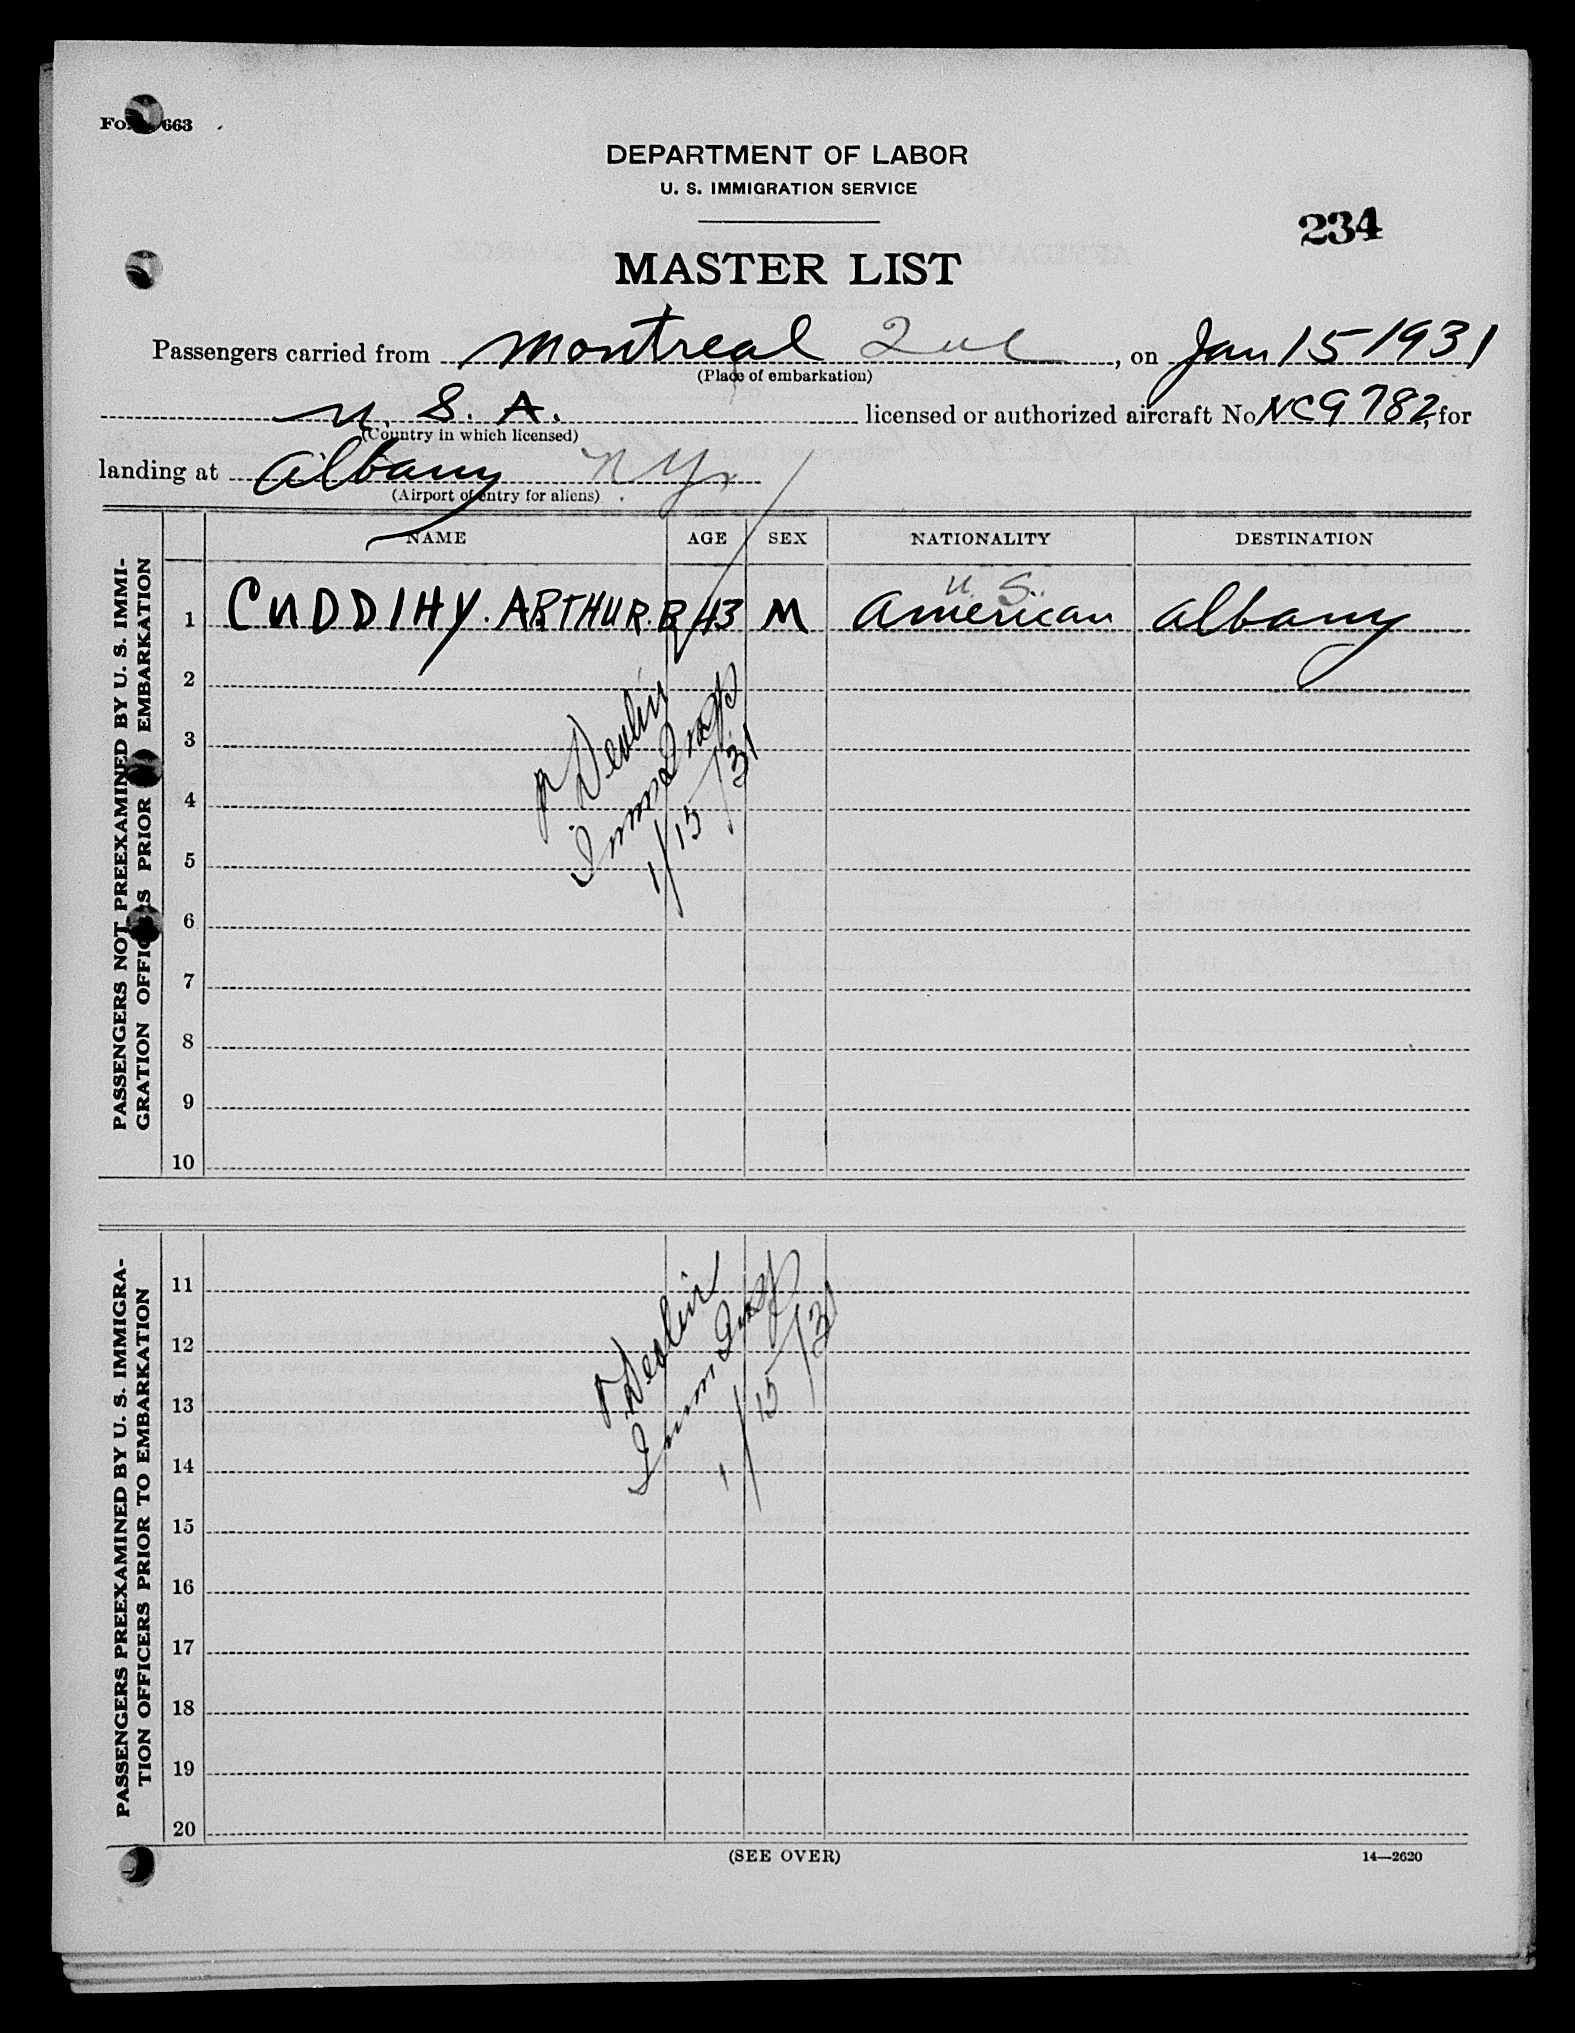 663
DEPARTMENT OF LABOR
U. S. IMMIGRATION SERVICE
234
MASTER LIST
Passengers carried from Montreal Que, on Jan 15 1931
(Place of embarkation)
U. S. A. licensed or authorized aircraft No. NC9782, for
(Country in which licensed)
landing at Albany NY
(Airport of entry for aliens)
NAME AGE SEX NATIONALITY DESTINATION
PASSENGERS NOT PREEXAMINED BY U. S. IMMI-
GRATION OFFICERS PRIOR EMBARKATION
U. S.
1 CUDDIHY. ARTHUR. B 43 M American Albany
2
3
4
5
6
7
8
9
10
P Devlin
Imm Insp
1/15/31
PASSENGERS PREEXAMINED BY U. S. IMMIGRA-
TION OFFICERS PRIOR TO EMBARKATION
11
12
13
14
15
16
17
18
19
20
P Devlin
Imm Insp
1/15/31
(SEE OVER) 14—2620